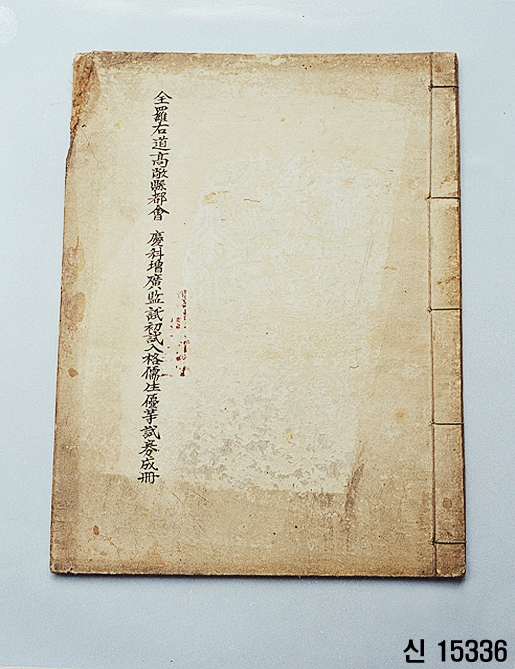 全羅右道高敞縣都會 慶科增廣監試初試入格儒生優等試券成冊
신 15336